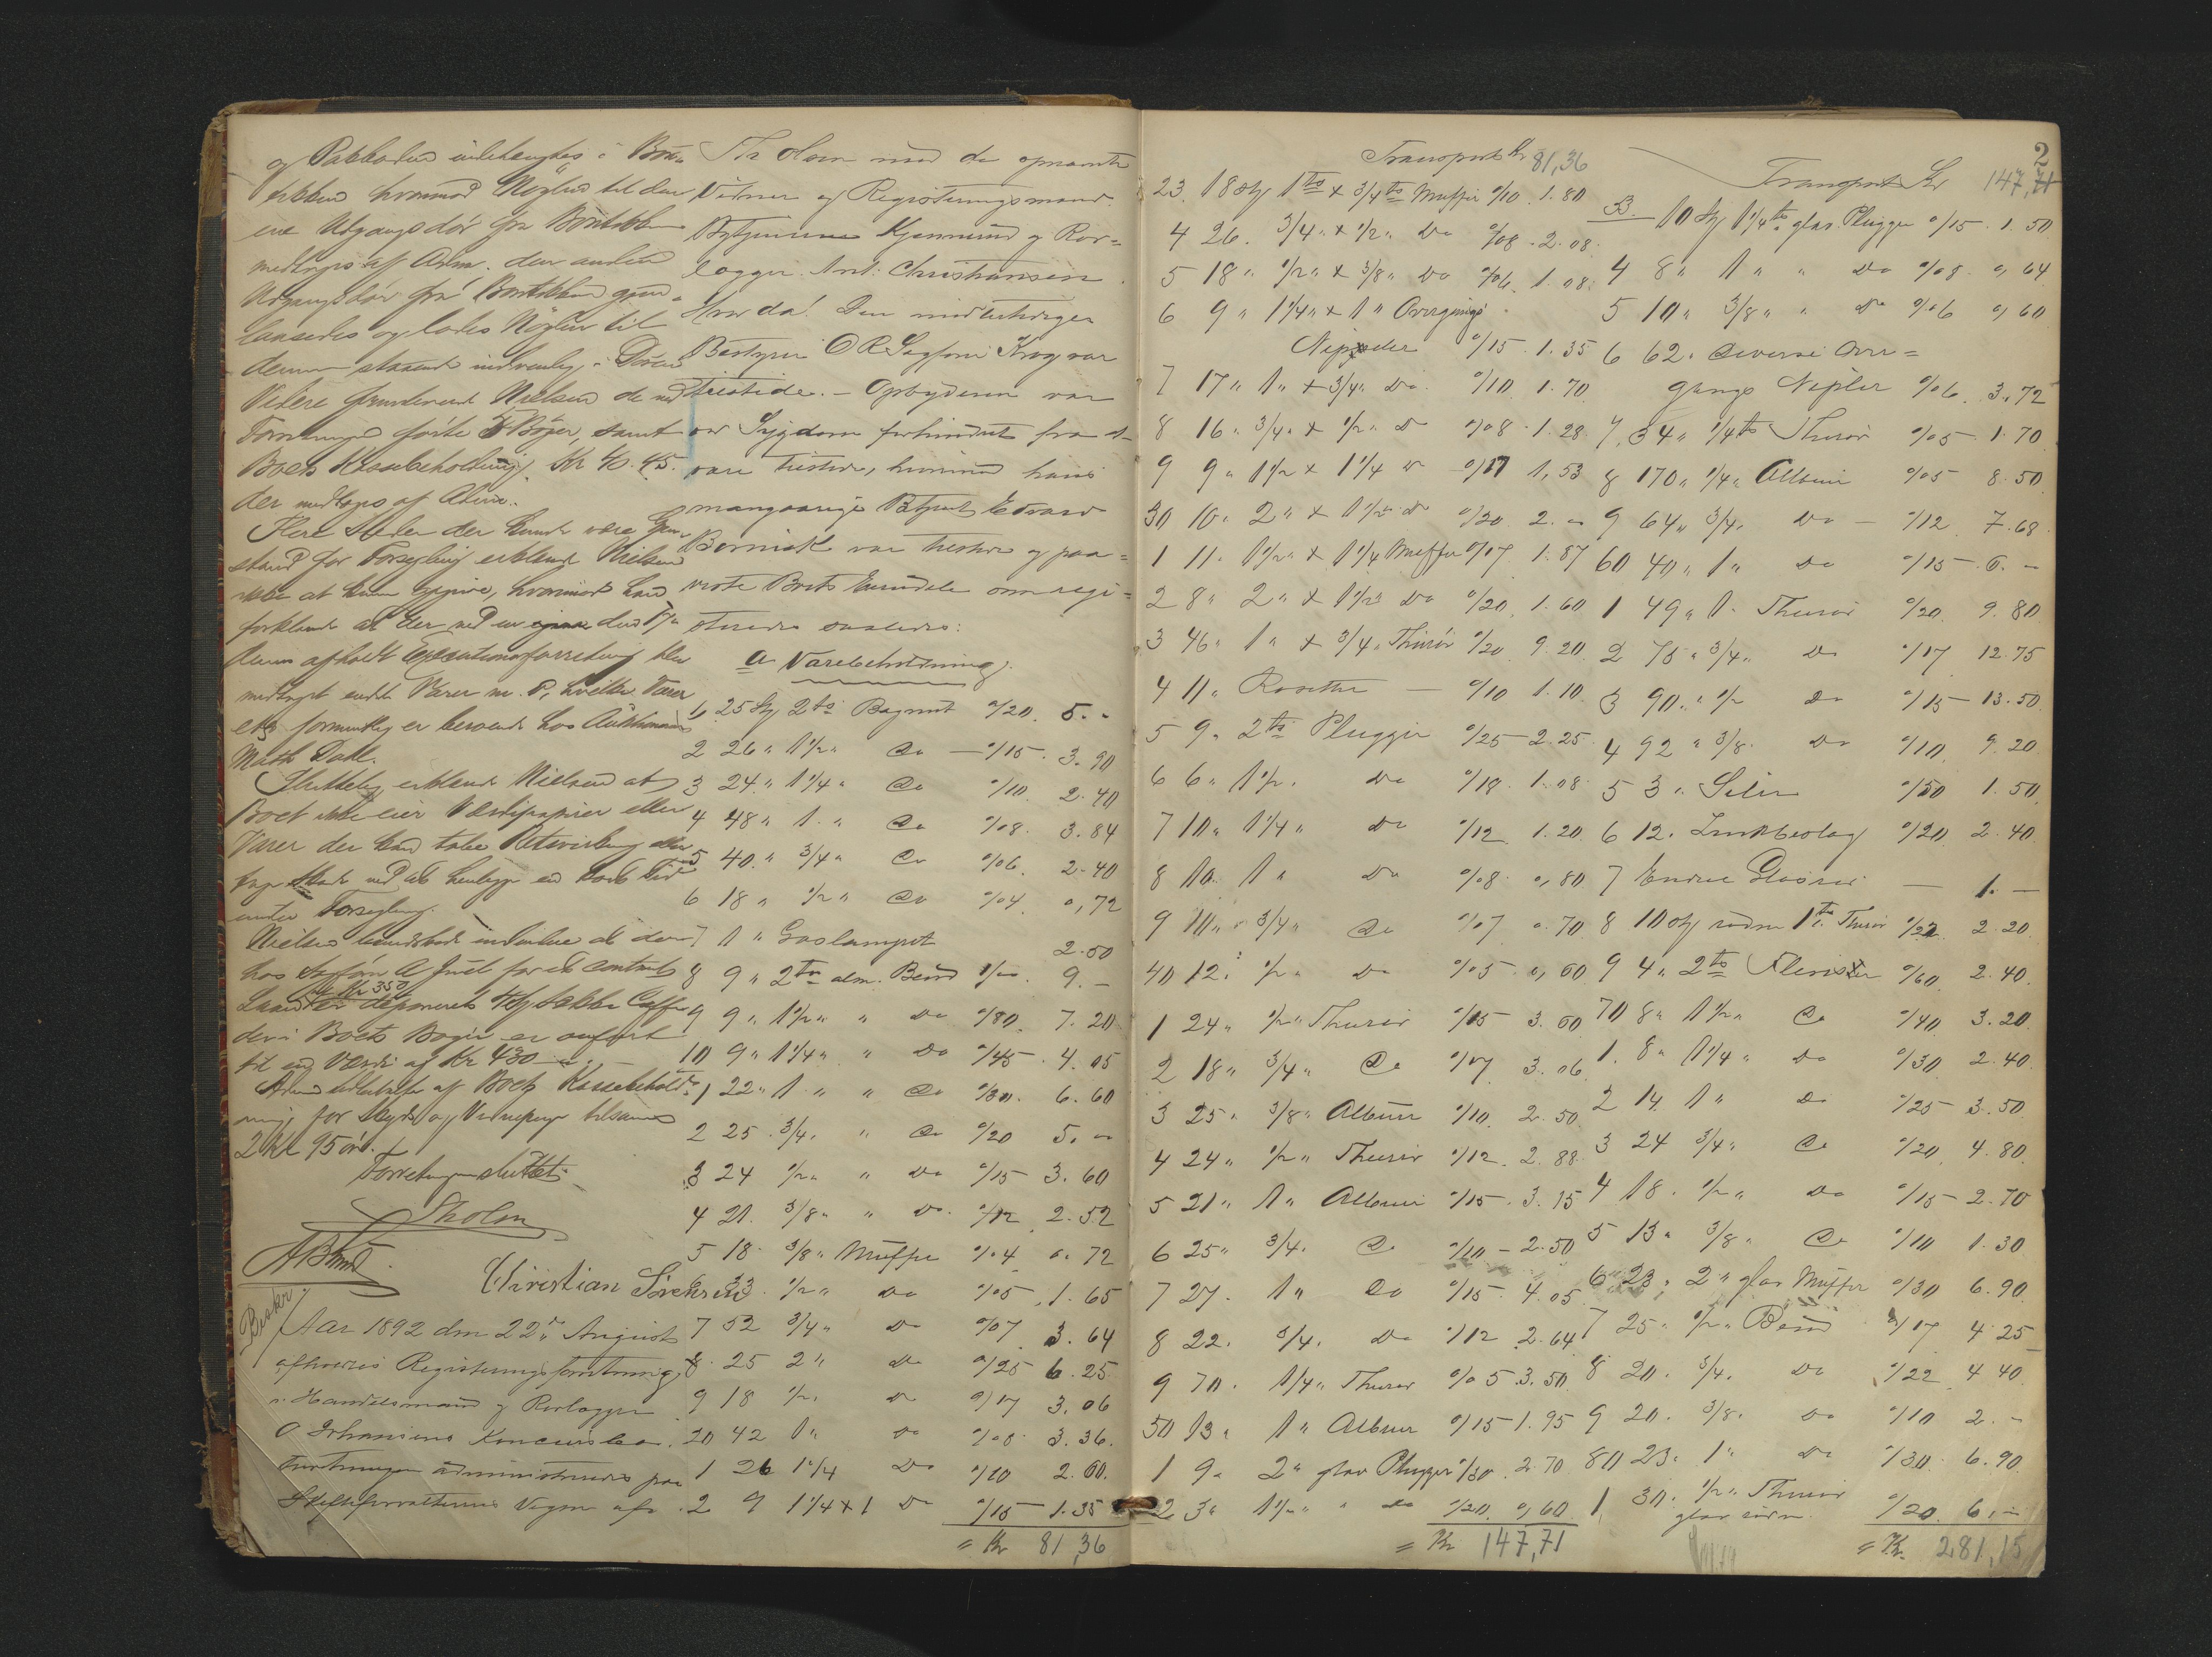 og Pakboden indehængtes i Bou-
tikken hvorimod Nøglen til den
ene Udgangsdør fra Boutikken
medtoges af Adm. den anden
Udgangsdør fra Boutikken
og lodes Nøglen til
denne staaende indvendig i Døren
Videre Nielsen de ved
Forretningen førte 5 Bøger, samt
Boets Kassebeholdning, Kr 40.45.
der medtoges af Adm.
Flere Steder der kunde være Gjen-
stand for Forsegling erklærede Nielsen
ikke at kunne opgive, hvorimod han
forklarede at der ved en den 17de
dennes afholdt Executionsforretning blev
medtaget endel Varer
formentlig er beroende hos Auktionarius
Math. Dahl.
Sluttelig erklærede Nielsen at
Boet ikke eier Værdipapirer eller
Varer der kan tabe Retsvirkning eller
tage Skade ved at henlægge en kort Tid
under Forsegling.
Nielsen at der
hos Sagfører A Juel for et contant
Laan Kr 350 er deponeret Sække Caffe
der i Boets Bøger er anført
til en Værdi af Kr 430
Adm. af Boets Kassebehold-
ning for Skyds og Vidnepenge tilsammen
2 Kr 95 øre.
Forretningen sluttet.
Tholm
Christian Sörensen
Beskr.
Aar 1892 den 22de August
afholdtes Registreringsforretning
i Handelsmand og Rørlægger
O Johansens Koncursbo.
Forretningen administreredes paa
Skifteforvalterens Vegne af
Th. Olsen med de opnævnte
Vidner og Registreringsmænd
Kjennerud og Rør-
lægger Ant. Christiansen
Hvor da! Den midlertidige
Bestyrer O R Sagfører Krog var
tilstede. – Opbyderen var
ved Sygdom forhindret fra at
være tilstede, hvorimod hans
mangeaarige Betjent Edvard
Bernick var tilstede og paa-
viste Boets Eiendele som regi-
streredes saaledes:
a Varebeholdning.
1, 25 Stk 2ts Bagmut º/20. 5. "
2 26 " 1½ " do — º/15. 3.90
3 24 " 1¼ " do º/10. 2.40
4 48 " 1 " do º/08. 3.84
5 40 " 3/4 " do º/06. 2.40
6 18 " ½ " do º/04. 0,72
7 1 " Gaslampet 2.50
8 9 " 2ts alm. Bend 1/00. 9. –
9 9 " 1½ " " do º/80. 7.20
10 9 " 1¼ " " do º/45. 4.05
1 22 " 1 " " do º/30. 6.60
2 25 3/4 " " do º/20 5. "
3 24 ½ " " do º/15 3.60
4 21. 3/8 " " do. º/12 2.52
5 18. 3/8 " Muffe º/04 0.72
6 33. ½ " do º/05. 1.65
7 52 3/4 " do º/07 3.64
8. 25 2 " do º/25 6.25
9 18 ½ " do º/17 3.06
20 42 1 " do º/08 3.36.
1 26 1¼ do º/10 2.60.
2 9 1¼ x 1 do º/15 1.35
= Kr 81,36
Transport Kr 81,36
23. 18 stk 1ts x 3/4ts Muffer º/10. 1.80
4 26. 3/4 " x ½ " do º/08. 2.08.
5 18 " ½ " x 3/8 " do º/06. 1.08.
6 9 " 1¼ " x 1 " Overgangs
Nepeder º/15. 1.35
7 17 " 1 " x 3/4 " do. º/10. 1.70
8 16 " 3/4 " x ½ " do º/08. 1.28
9 9 " 1½ x 1¼ do º/17 1,53
30 10 " 2 " x 1½ " do º/20. 2. "
1 11. 1½ " x 1¼ Muffer º/17 1.87
2 8 " 2 " x 1½ " do º/20. 1.60
3 46 " 1 " x 3/4 " Thürör º/20 9.20
4 11 " Rosetter — º/10 1.10
5 9 " 2ts Plugger º/25 2.25
6 6 " 1½ " do º/18 1.08
7 10 " 1¼ " do º/12 1.20
8 10. 1 " do º/08 0,80
9 10 " 3/4 " do º/07 0.70
40 12. ½ " do º/05 0,60
1 24 " ½ " Thürör º/15 3.60
2 18 " 3/4 " do º/17. 3.06
3 25 " 3/8 " Albuer º/10. 2.50
4 24 " ½ " Thürör º/12. 2.88
5 21 " 1 " Albuer º/15. 3.15
6 25 " 3/4 " do º/10 – 2.50
7 27. 1 " do º/15. 4.05
8 22. 3/4. do º/12 2.64
9 70. 1/4 " Thürör º/05 3.50
50 13 " 1 " Albuer º/15 1.95
1 9 " 2 " glav Plugger º/30. 2.70
2 3 " 1½ " " do º/20. 0,60
= Kr 147,71
2
Transport Kr 147,71
53. 10 Stk 1¼ts glav. Plugger º/15 1.50
4 8 " 1 " " do º/08. 0,64
5 10 " 3/8 " " do º/06 0,60
6 62. diverse Over=
gangs Nepler º/06. 3.72
7. 34 " 1/4ts Thürör º/05 1.70
8 170 " 1/4 " Albuer º/05 8.50
9 64 " 3/4 " do — º/12 7.68.
60 40 " 1 " do º/15 6. –
1 49 " 1. Thürör º/20 9.80
2 75 " 3/4 " do º/17 12.75
3 90. " ½ do º/15 13.50
4 92 " 3/8. do º/10 9.20
5 3 " Seler º/50 1.50
6 12. Lmkbeslag º/20 2.40
7 Endel — 1. –
8 10 stk 1ts Thürör º/22 2.20
9 4 " 2ts º/60. 2.40.
70 8 " 1½ " do º/40 3.20.
1. 8 " 1¼ " do º/30 2.40.
2 14. 1 " do º/25 3.50
3 24 3/4 " do º/20 4.80
4 18. ½ " do º/15 2.70
5 13 " 3/8 " do º/10 1.30
6 23. 2 " glav Muffer º/30 6.90
7 25. ½ " Bend º/17 4.25
8 20. 3/4. do º/22 4.40
9 20. 3/8. do º/10 2. –
80 23. 1 " do º/30. 6.90
1, 30. ½ " Thürör
glav º/20. 6. –
= Kr. 281,15